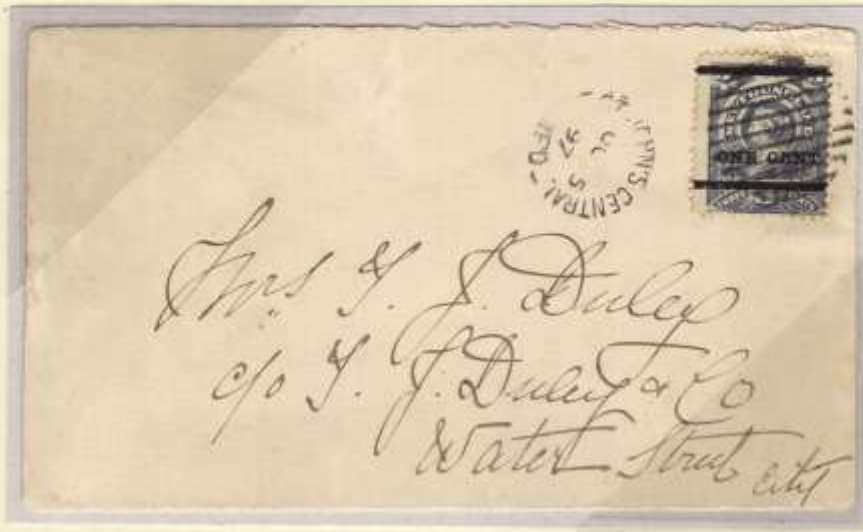 ST. JOHN'S CENTRAL - NFD
UL 5
97
ONE CENT
Mrs T. J. Duley
c/o T. J. Duley & Co
Water Street
City